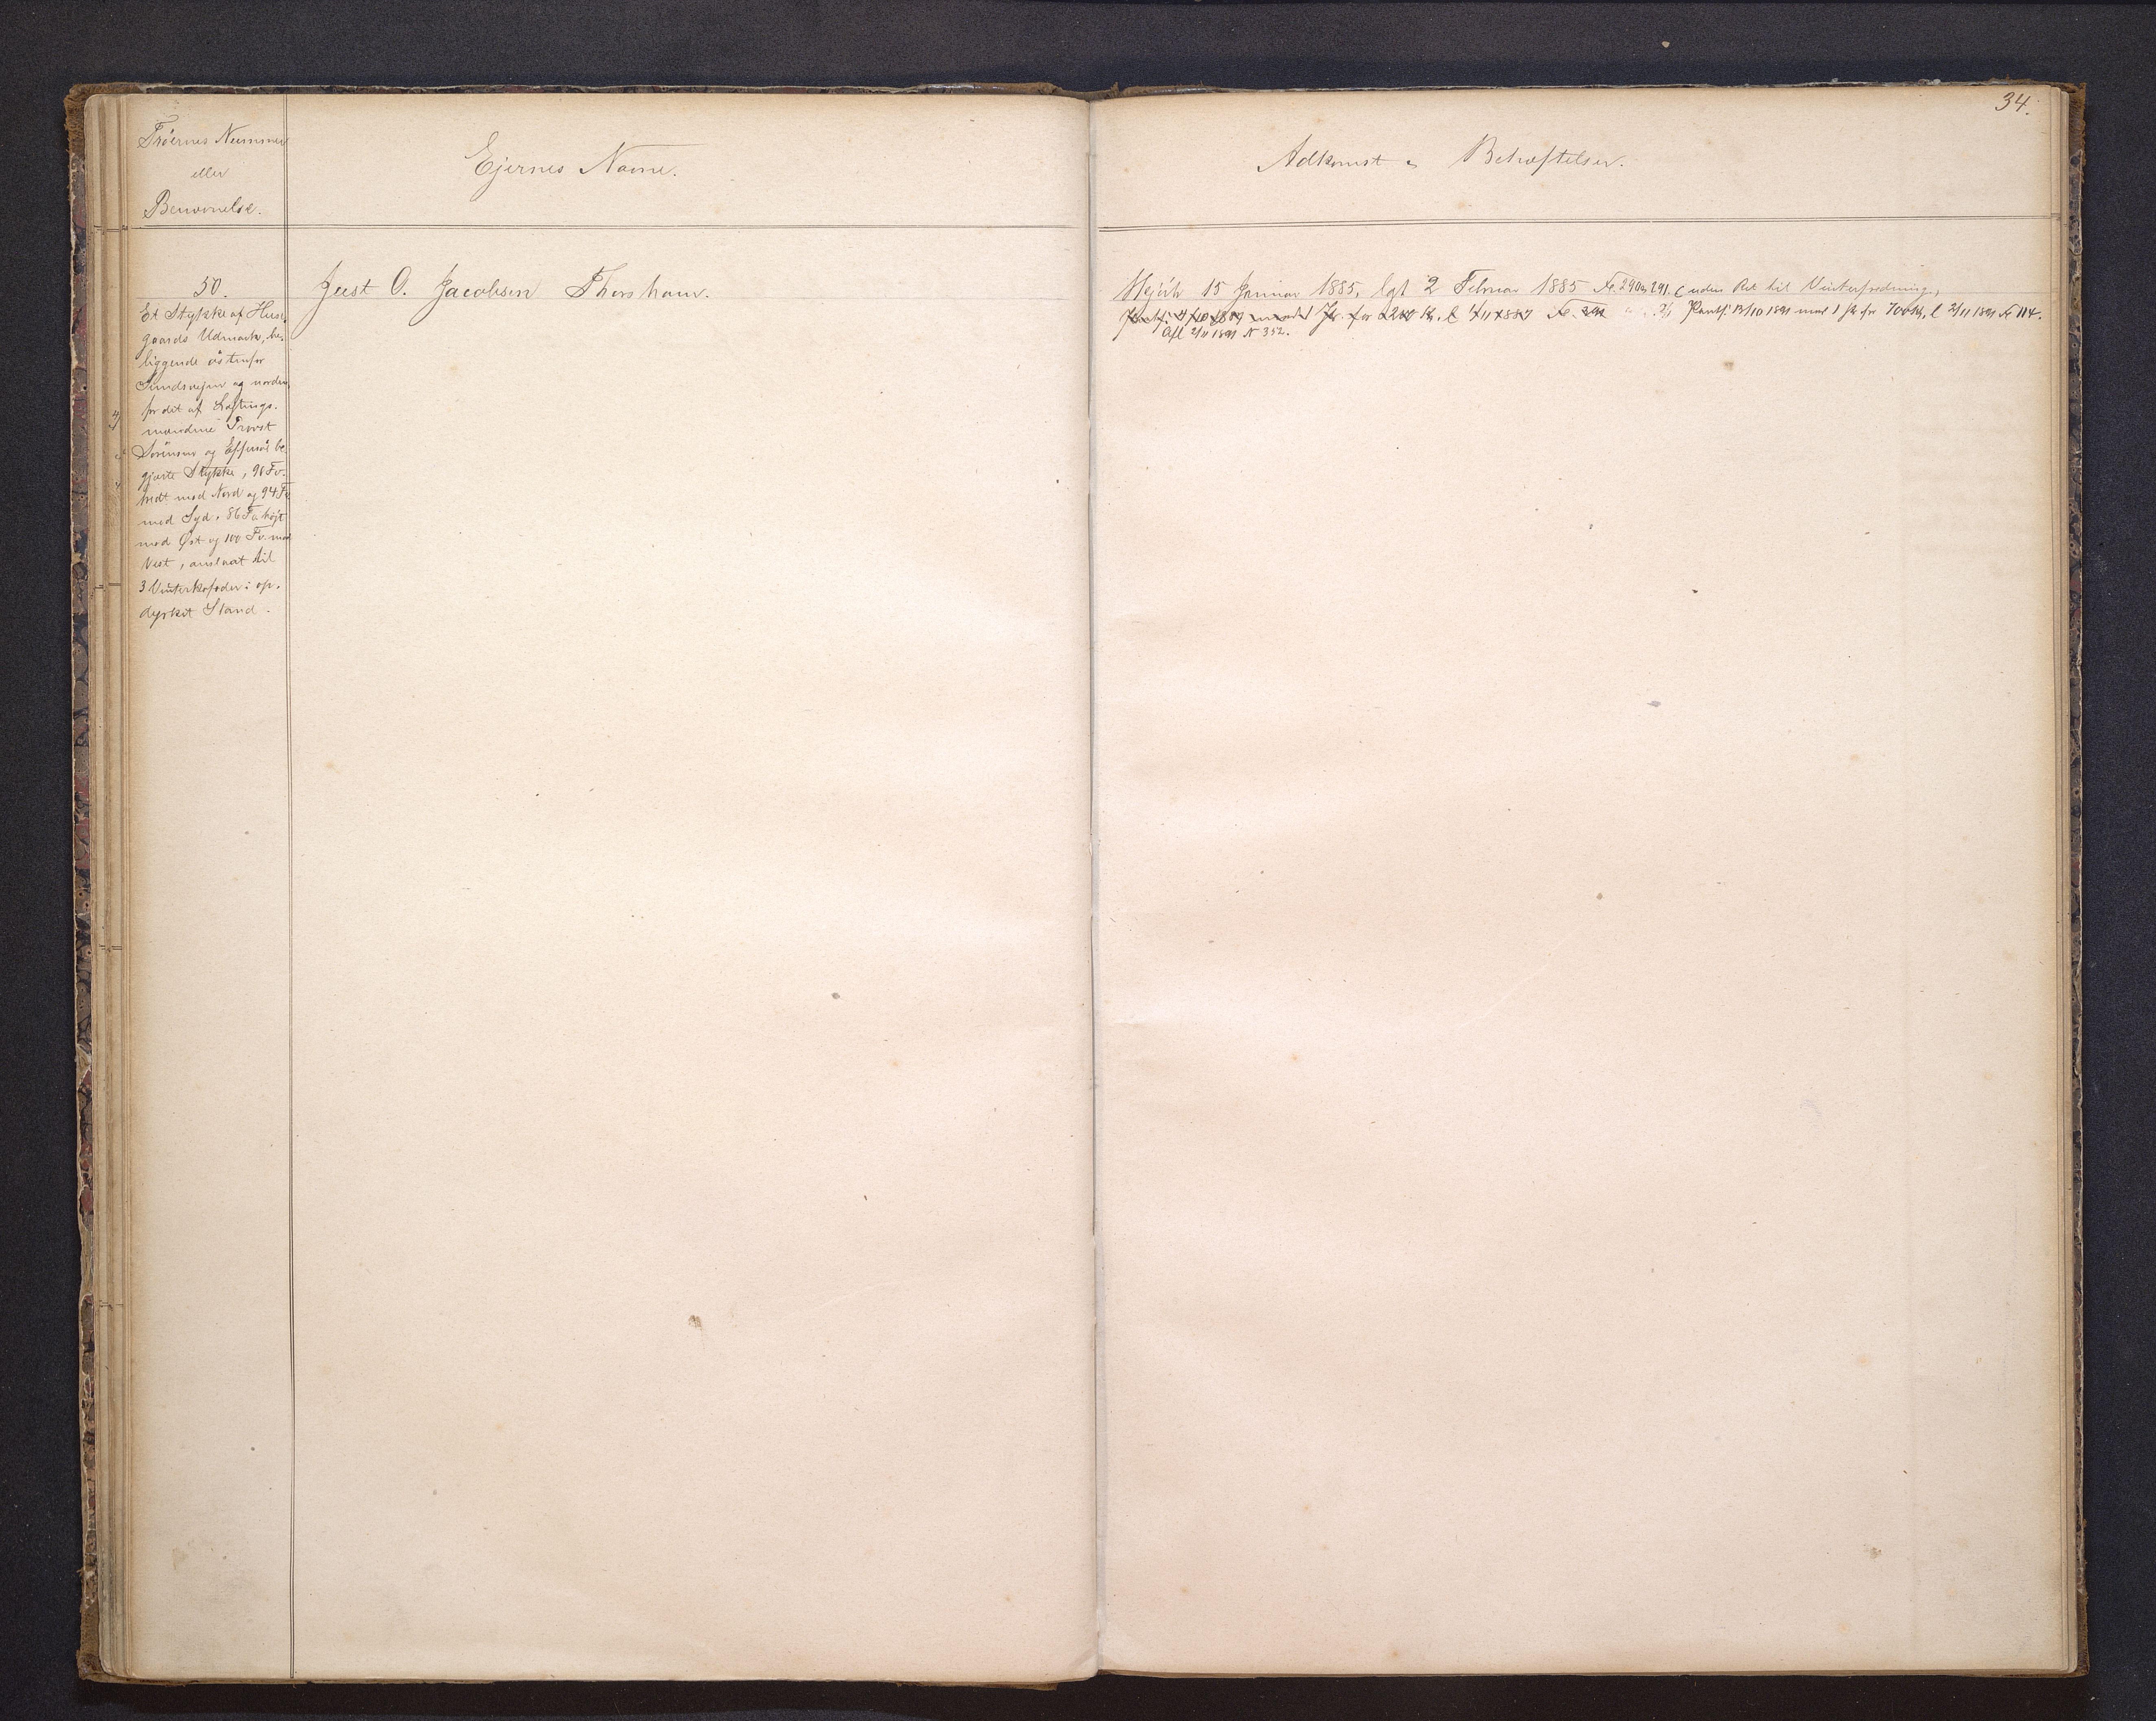 34.
Trøernes Nummer
eller
Benævnelse.
Ejernes Navne.
Adkomst & Behæftelser.
50.
Et Stykke af Hus-
gaards Udmark, be-
liggende østenfor
Sundsvejen og norden
for det af Lagtings-
mændene Provst
Sørensen og Effersøe be-
gjærte Stykke, 90 Fv.
bredt mod Nord og 94 Fv.
mod Syd, 86 Fv. højt
mod Øst og 100 Fv. mod
Vest, anslaaet til
3 Vinterkofoder i op-
dyrket Stand.
Just O. Jacobsen Thorshavn.
Skjøde 15 Januar 1885, lgt 2 Februar 1885 No. 290 & 291. (uden Ret til Vinterfredning.)
1887 med for Kr. l. 1887 No. Pantf. 13/10 1891 med 1 Pr. for 700 Kr, l 2/11 1891 No 114.
Afl 2/11 1891 N 352.